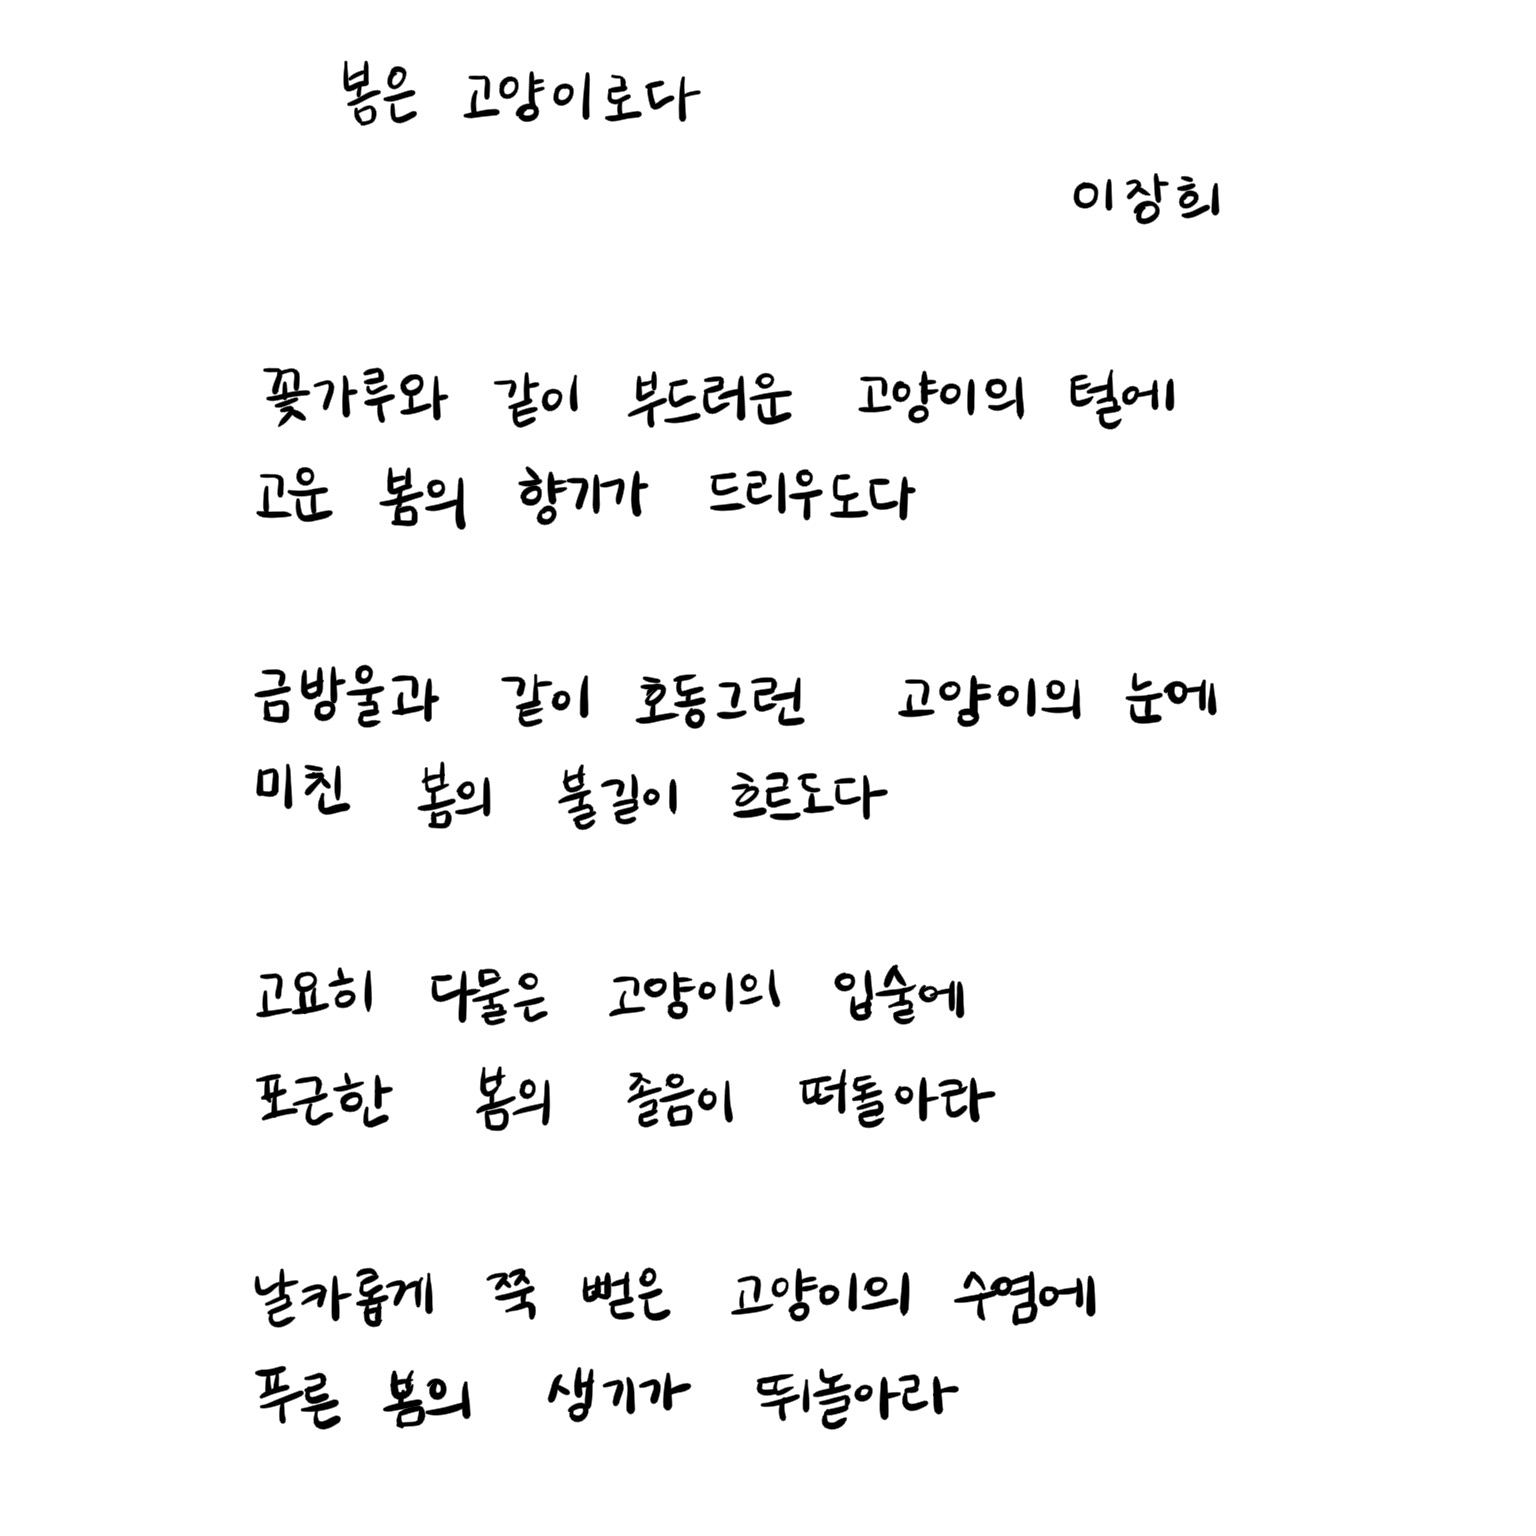 봄은 고양이로다
이장희
꽃가루와 같이 부드러운 고양이의 털에
고운 봄의 향기가 드리우도다
금방울과 같이 호동그런 고양이의 눈에
미친 봄의 불길이 흐르도다
고요히 다물은 고양이의 입술에
포근한 봄의 졸음이 떠돌아라
날카롭게 쭉 뻗은 고양이의 수염에
푸른 봄의 생기가 뛰놀아라